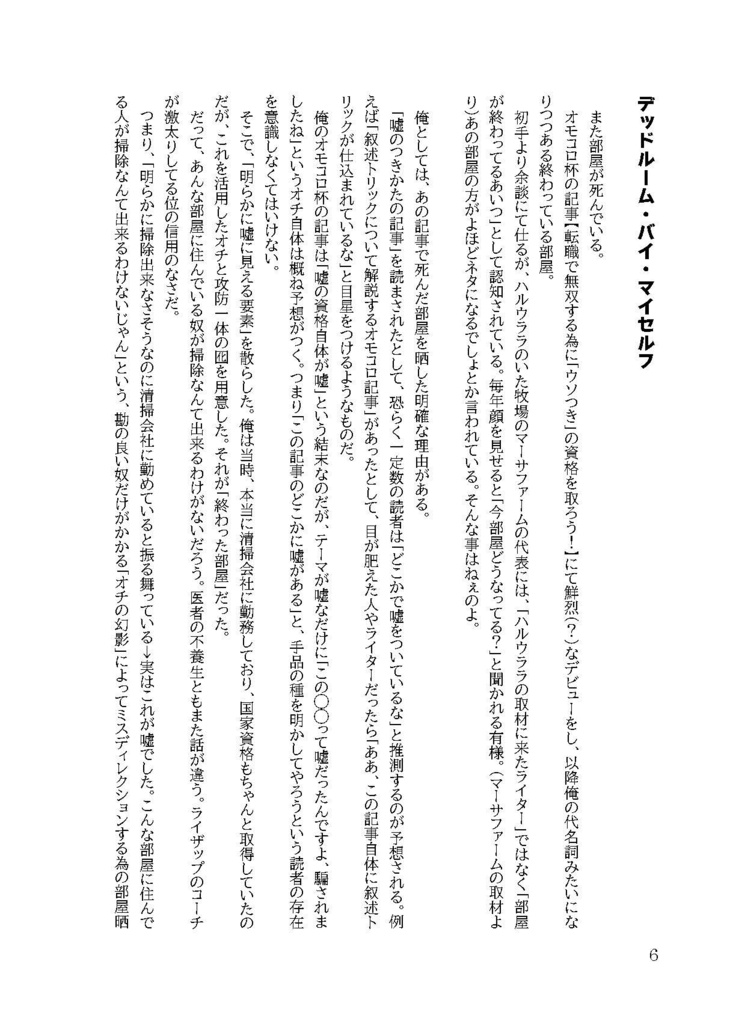 デッドルーム・バイ・マイセルフ
また部屋が死んでいる。
オモコロ杯の記事【転職で無双する為に「ウソつき」の資格を取ろう！】にて鮮烈(？)なデビューをし、以降俺の代名詞みたいにな
りつつある終わっている部屋。
初手より余談にて仕るが、ハルウララのいた牧場のマーサファームの代表には、「ハルウララの取材に来たライター」ではなく「部屋
が終わってるあいつ」として認知されている。毎年顔を見せると「今部屋どうなってる？」と聞かれる有様。(マーサファームの取材よ
り)あの部屋の方がよほどネタになるでしょとか言われている。そんな事はねぇのよ。
俺としては、あの記事で死んだ部屋を晒した明確な理由がある。
「嘘のつきかたの記事」を読まされたとして、恐らく一定数の読者は「どこかで嘘をついているな」と推測するのが予想される。例
えば「叙述トリックについて解説するオモコロ記事」があったとして、目が肥えた人やライターだったら「ああ、この記事自体に叙述ト
リックが仕込まれているな」と目星をつけるようなものだ。
俺のオモコロ杯の記事は「嘘の資格自体が嘘」という結末なのだが、テーマが嘘なだけに「この〇〇って嘘だったんですよ、騙されま
したね」というオチ自体は概ね予想がつく。つまり「この記事のどこかに嘘がある」と、手品の種を明かしてやろうという読者の存在
を意識しなくてはいけない。
そこで、「明らかに嘘に見える要素」を散らした。俺は当時、本当に清掃会社に勤務しており、国家資格もちゃんと取得していたの
だが、これを活用したオチと攻防一体の囮を用意した。それが「終わった部屋」だった。
だって、あんな部屋に住んでいる奴が掃除なんて出来るわけがないだろう。医者の不養生ともまた話が違う。ライザップのコーチ
が激太りしてる位の信用のなさだ。
つまり、「明らかに掃除出来なさそうなのに清掃会社に勤めていると振る舞っている→実はこれが嘘でした。こんな部屋に住んで
る人が掃除なんて出来るわけないじゃん」という、勘の良い奴だけがかかる「オチの幻影」によってミスディレクションする為の部屋晒
6